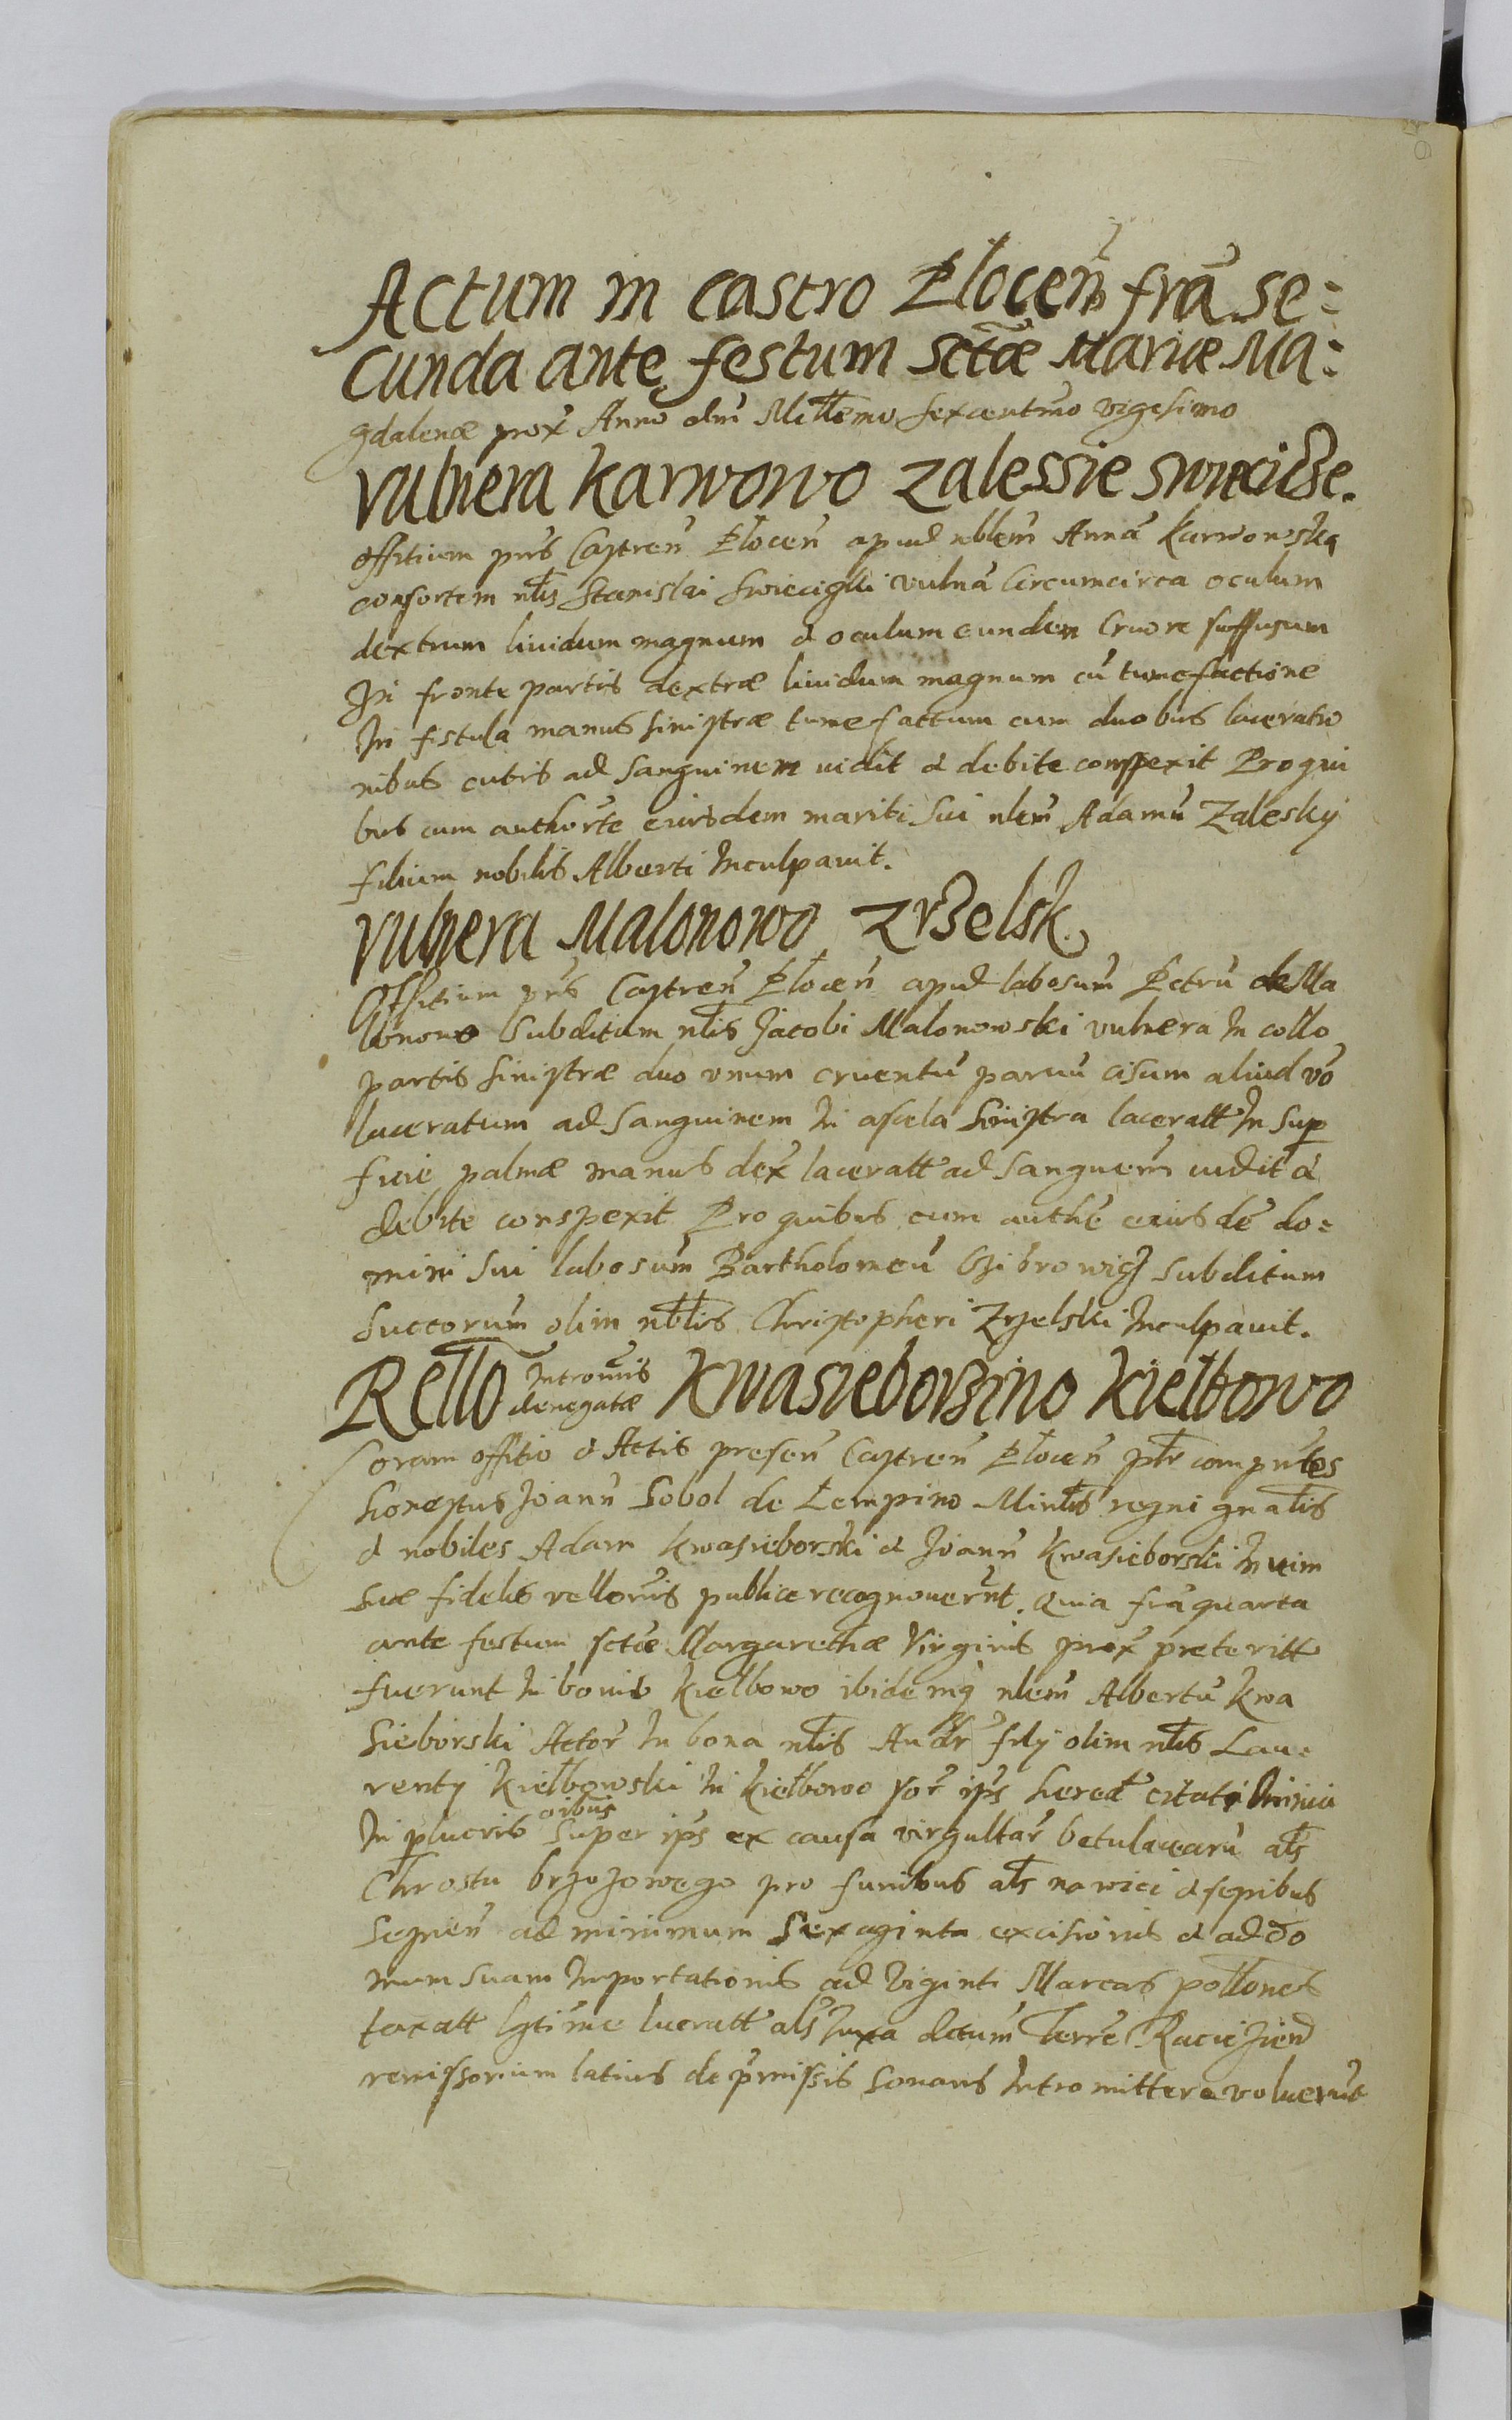 Actum in Castro Płoceñ frã se=
cunda ante festum Sctæ Mariæ Ma=
gdalenæ prox Anno dni Millemo sexcentmo vigesimo
Vulnera Karwowo Zalessie
Offitium pns Castren Płocen apud nblem Annã Karwowska
consortem nlis Stanislai vulnã Circumcirca oculum
dextrum liuidum magnum & oculum eundem Cruore suffusum
In fronte partis dextræ liuidum magnum cũ tumefactione
In fistula manus sinistræ tumefactum cum duobus laceratio
nibus cutis ad sanguinem uidit & debite conspexit Pro qui
bus cum authorte eiusdem mariti sui nlem Adamũ Zalesky
filium nobilis Alberti Inculpauit.
Vulnera Malonowo Zrzelsk
Offitium pns Castren Płocen apud labosum Petrũ de Ma
lonowo Subditum nlis Jacobi Malonowski vulnera In collo
partis sinistræ duo vnum cruentũ paruũ cisum aliud vo
laceratum ad sanguinem In ascela sinistra laceratt In sup
ficie palmæ manus dex laceratt ad sanguem uidit &
debite conspexit Pro quibus cum authe eiusde do=
mini sui labosum Bartholomeũ subditum
Succorum olim nblis Christopheri Zrzelski Inculpauit.
Rello Intromis
denegatæ Kwasieborzino Kiełbowo
Coram offitio & Actis presen Castren Płocen ptr compntes
honestus Joann Sobol de Lempino Minlis regni gnalis
& nobiles Adam Kwasieborski & Joann Kwasieborski In uim
suæ fidelis rellonis publice recognouerunt. Quia frã quarta
ante festum sctæ Margarethæ Virginis prox preteritt
fuerunt In bonis Kiełbowo ibidemq nlem Albertũ Kwa
sieborski Actor In bona nlis Andr filij olim nlis Lau=
rentij Kiełbowski In Kiełbowo ips hered citati
In lucris oibus super ips ex causa virgultar betulacearũ als
Chrostu brzozowego pro funibus als na wici & sepibus
sepien ad minimum Sexaginta excisionis & ad do
mum suam Importationis ad Viginti Marcas pollones
taxatt lgtime lucratt als Iuxa dctum Terre Raciezien
remissorium latius de pmissis sonans Intromittere voluerut